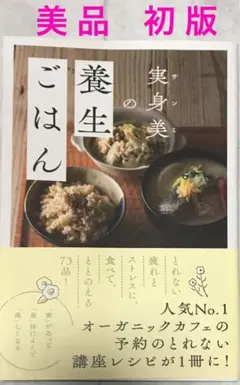 美品 初版
実身美
サンミ
の
養生
ごはん
とれない
疲れと
ストレスに。
食べて、
ととのえる
73品!
人気No.1
オーガニックカフェの
予約のとれない
講座レシピが1冊に!